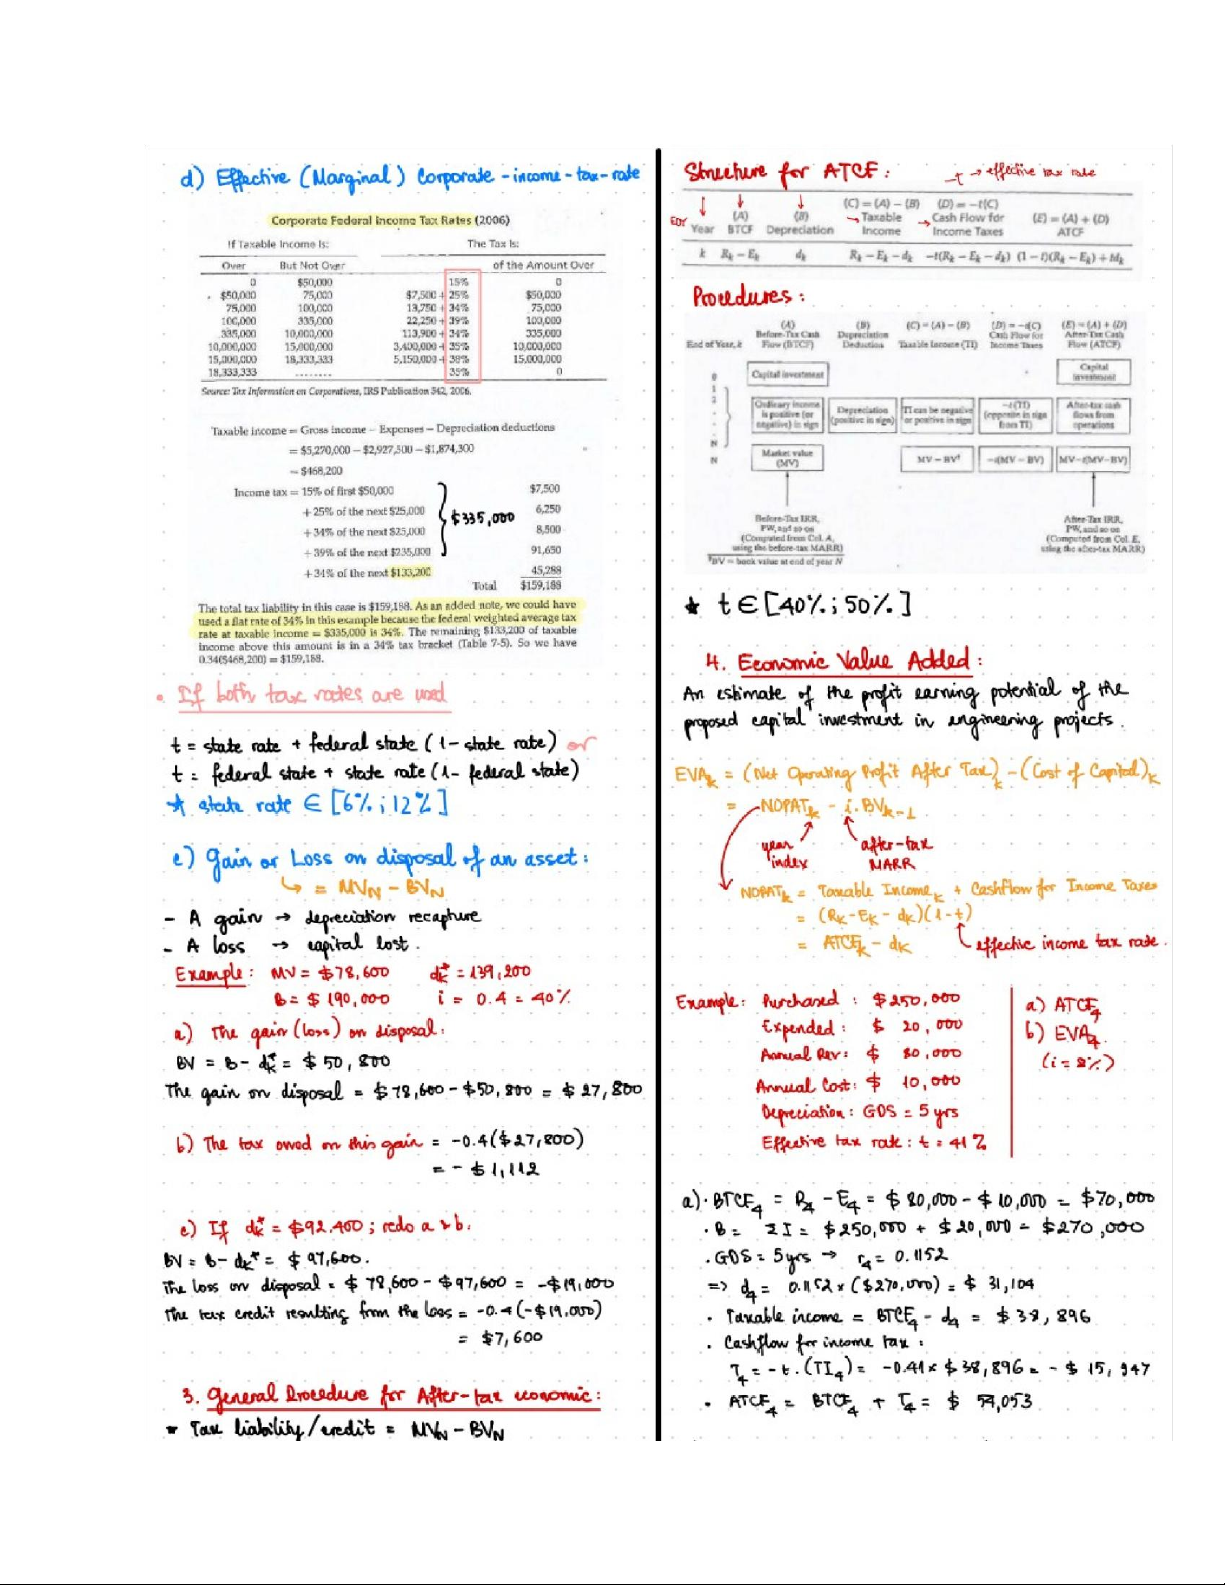 d) Effective (Marginal) Corporate - income - tax - rate
Corporate Federal Income Tax Rates (2006)
If Taxable Income Is: The Tax Is:
Over But Not Over of the Amount Over
0 $50,000 15% 0
$50,000 75,000 $7,500 + 25% $50,000
75,000 100,000 13,750 + 34% 75,000
100,000 335,000 22,250 + 39% 100,000
335,000 10,000,000 113,900 + 34% 335,000
10,000,000 15,000,000 3,400,000 + 35% 10,000,000
15,000,000 18,333,333 5,150,000 + 38% 15,000,000
18,333,333 ........ 35% 0
Source: Tax Information on Corporations, IRS Publication 542, 2006.
Taxable income = Gross income − Expenses − Depreciation deductions
= $5,270,000 − $2,927,500 − $1,874,300
= $468,200
Income tax = 15% of first $50,000 $7,500
+ 25% of the next $25,000 6,250
$335,000
+ 34% of the next $25,000 8,500
+ 39% of the next $235,000 91,650
+ 34% of the next $133,200 45,288
Total $159,188
The total tax liability in this case is $159,188. As an added note, we could have
used a flat rate of 34% in this example because the federal weighted average tax
rate at taxable income = $335,000 is 34%. The remaining $133,200 of taxable
income above this amount is in a 34% tax bracket (Table 7-5). So we have
0.34($468,200) = $159,188.
• If both tax rates are used
t = state rate + federal state (1 - state rate) or
t = federal state + state rate (1 - federal state)
* state rate ∈ [6% ; 12%]
e) Gain or Loss on disposal of an asset :
↳ = MV_N - BV_N
- A gain → depreciation recapture
- A loss → capital lost.
Example : MV = $78,600 d_k* = 139,200
B = $ 190,000 i = 0.4 = 40%
a) The gain (loss) on disposal :
BV = B - d_k* = $ 50,800
The gain on disposal = $78,600 - $50,800 = $27,800
b) The tax owed on this gain = -0.4($27,800)
= - $1,112
c) If d_k* = $92.400 ; redo a & b.
BV = B - d_k* = $ 97,600.
The loss on disposal = $ 78,600 - $97,600 = -$19,000
The tax credit resulting from the loss = -0.4(-$19,000)
= $7,600
3. General Procedure for After-tax economic :
* Tax liability/credit = MV_N - BV_N
Structure for ATCF : t → effective tax rate
(C) = (A) − (B) (D) = −t(C)
EOY (A) (B) → Taxable → Cash Flow for (E) = (A) + (D)
Year BTCF Depreciation Income Income Taxes ATCF
k R_k − E_k d_k R_k − E_k − d_k −t(R_k − E_k − d_k) (1 − t)(R_k − E_k) + td_k
Procedures :
(A) (B) (C) = (A) − (B) (D) = −t(C) (E) = (A) + (D)
Before-Tax Cash Depreciation Cash Flow for After-Tax Cash
End of Year, k Flow (BTCF) Deduction Taxable Income (TI) Income Taxes Flow (ATCF)
0 Capital investment Capital investment
1
2
Ordinary income is positive (or negative) in sign
Depreciation (positive in sign)
TI can be negative or positive in sign
−t(TI) (opposite in sign from TI)
After-tax cash flows from operations
N
N Market value (MV) MV − BV† −t(MV − BV) MV−t(MV−BV)
Before-Tax IRR, PW, and so on (Computed from Col. A, using the before-tax MARR)
After-Tax IRR, PW, and so on (Computed from Col. E, using the after-tax MARR)
†BV = book value at end of year N
* t ∈ [40% ; 50%]
4. Economic Value Added :
An estimate of the profit earning potential of the
proposed capital investment in engineering projects.
EVA_k = (Net Operating Profit After Tax)_k - (Cost of Capital)_k
= NOPAT_k - i.BV_k-1
year index
after-tax MARR
NOPAT_k = Taxable Income_k + Cashflow for Income Taxes
= (R_k - E_k - d_k)(1 - t)
= ATCF_k - d_k effective income tax rate.
Example : Purchased : $250,000
Expended : $ 20,000
Annual Rev : $ 80,000
Annual Cost : $ 10,000
Depreciation : GDS = 5 yrs
Effective tax rate : t = 41%
a) ATCF_4
b) EVA_4
(i = 8%)
a) • BTCF_4 = R_4 - E_4 = $ 80,000 - $ 10,000 = $70,000
• B = ΣI = $250,000 + $20,000 = $270,000
• GDS = 5 yrs → r_4 = 0.1152
=> d_4 = 0.1152 × ($270,000) = $ 31,104
• Taxable income = BTCF_4 - d_4 = $38,896
• Cashflow for income tax :
T_4 = - t . (TI_4) = -0.41 × $38,896 = - $ 15,947
• ATCF_4 = BTCF_4 + T_4 = $ 54,053